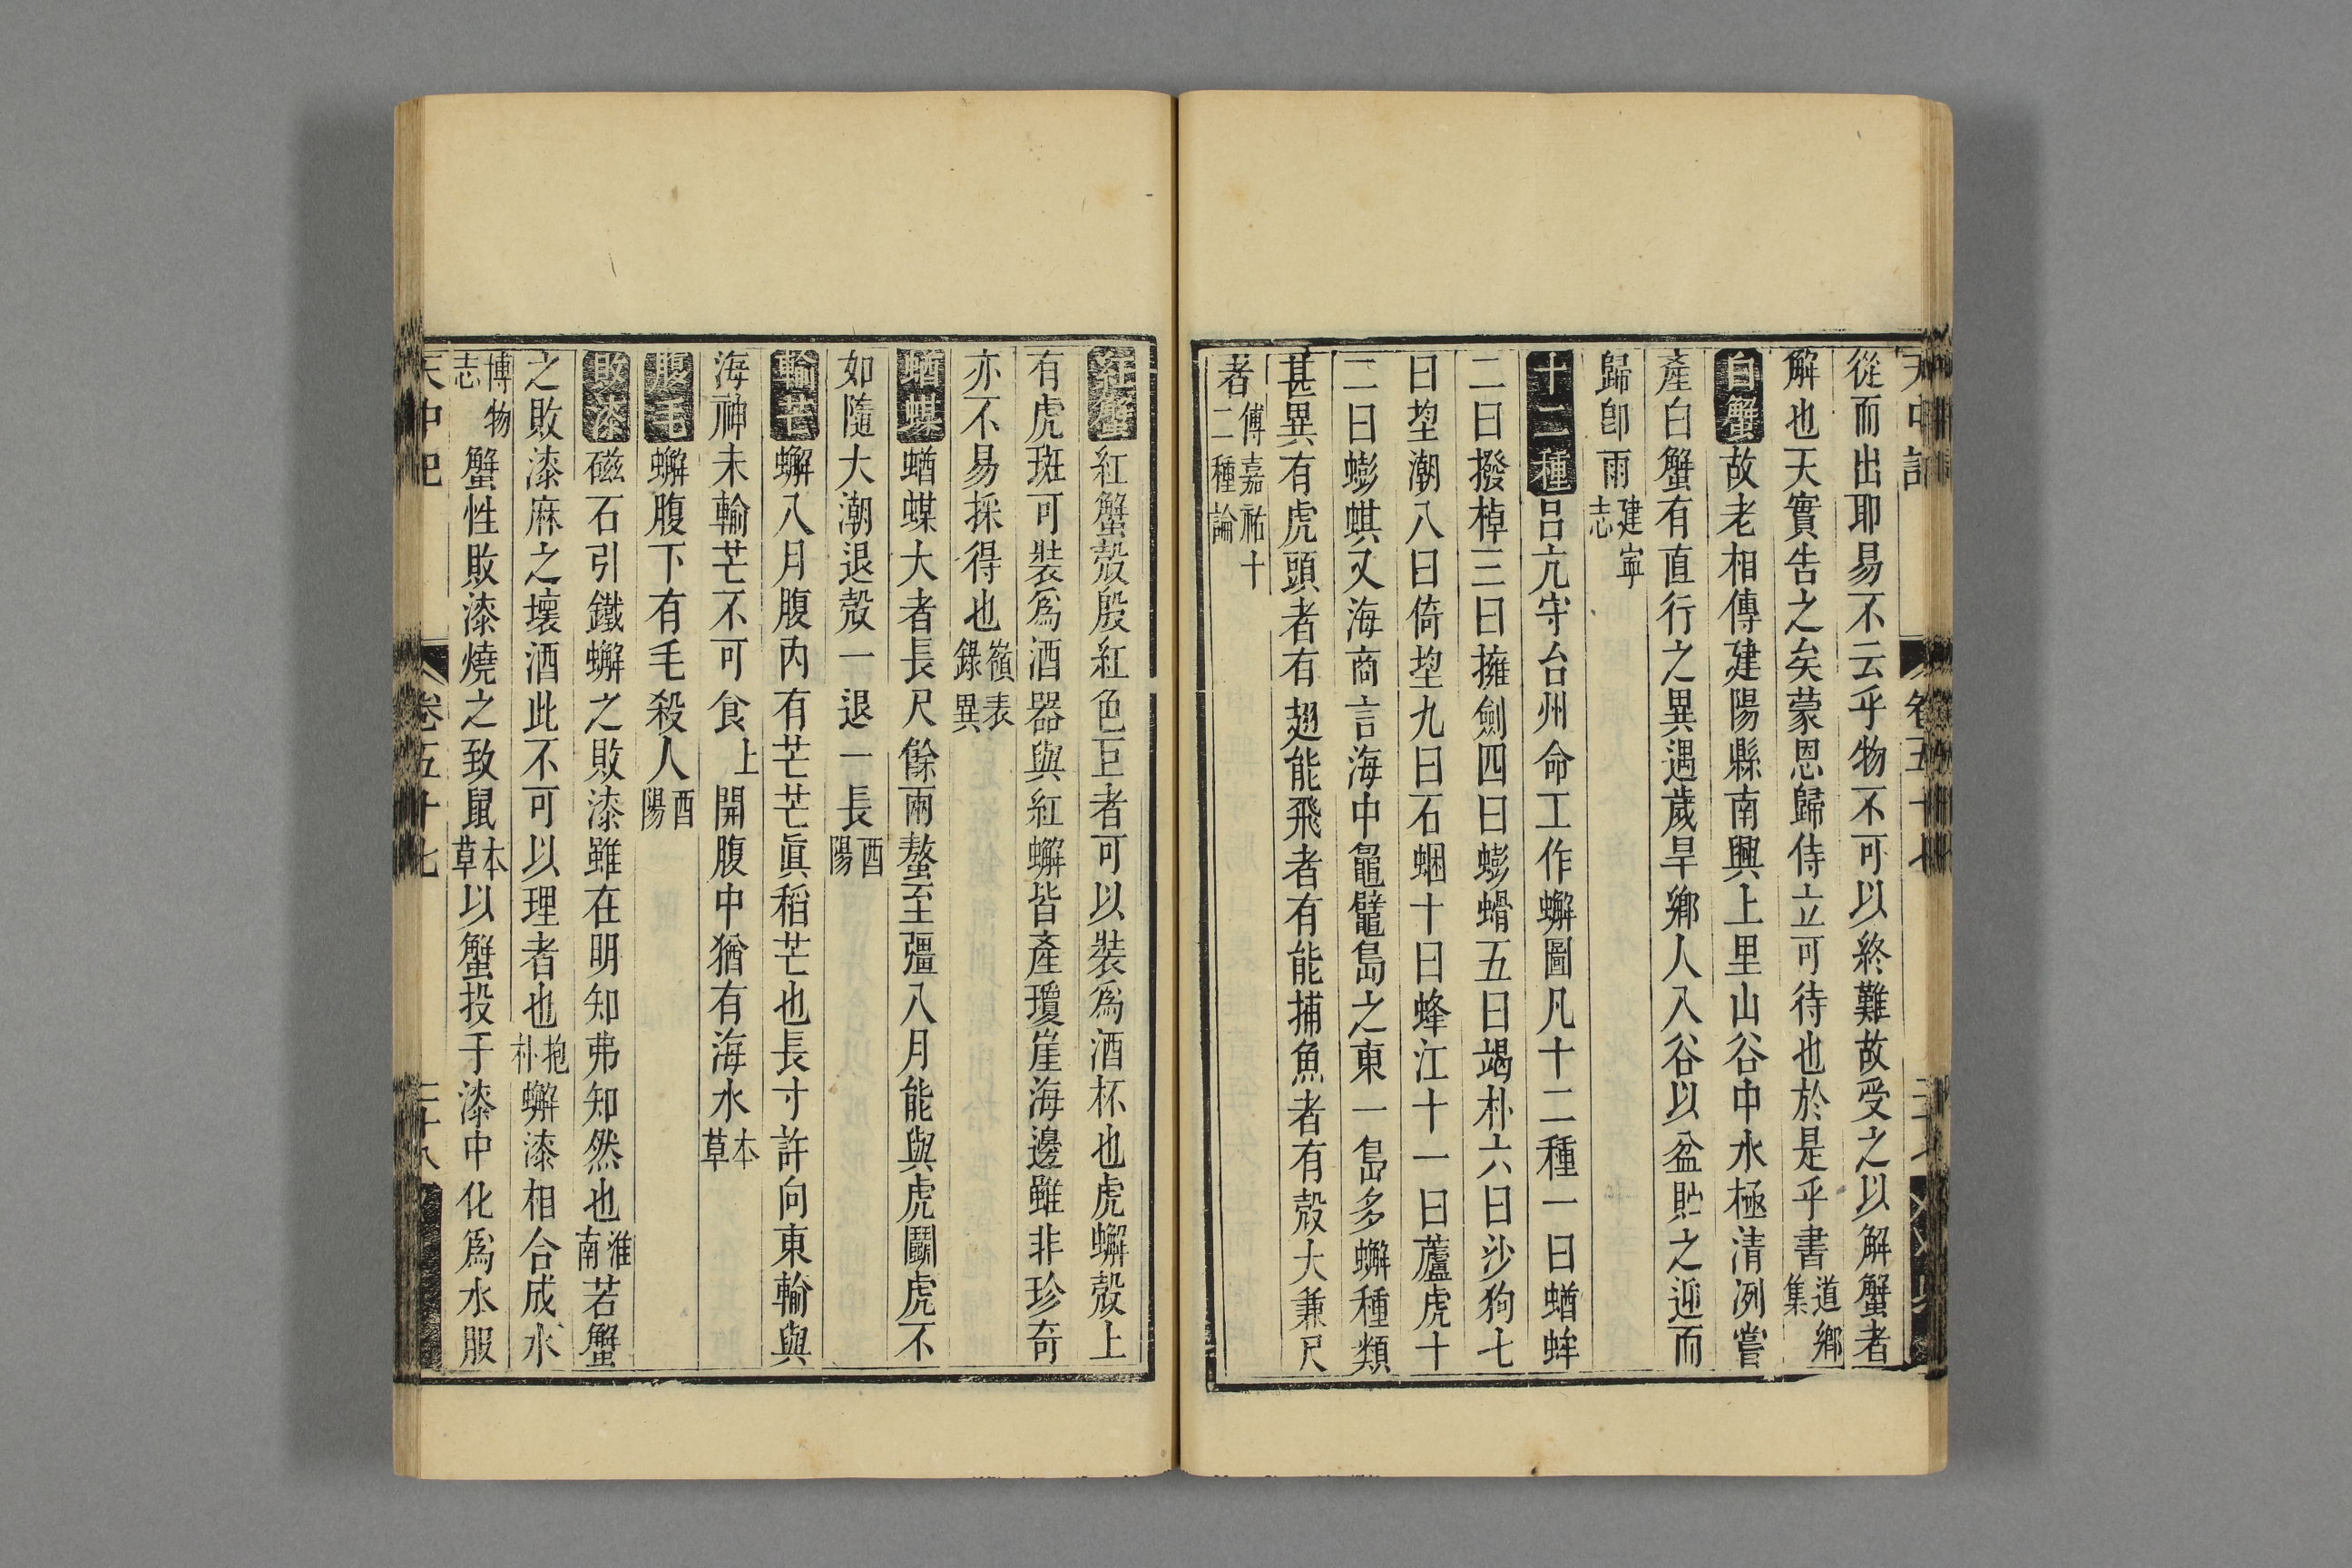 從而出耶易不云乎物不可以終難故受之以解蟹者
解也天實告之矣蒙恩歸侍立可待也於是乎書道鄉集
白蟹故老相傳建陽縣南興上里山谷中水極清冽嘗
產白蟹有直行之異遇歲旱鄉人入谷以盆貯之迎而
歸卽雨建寧志
十二種呂亢守台州命工作蠏圖凡十二種一曰蝤蛑
二曰撥棹三曰擁劍四曰蟛螖五曰竭朴六曰沙狗七
曰望潮八曰倚望九曰石蜠十曰蜂江十一曰蘆虎十
二曰蟛蜞又海商言海中鼂鼊島之東一島多蠏種類
甚異有虎頭者有翅能飛者有能捕魚者有殼大兼尺
者傅嘉祐十二種論
紅蟹紅蟹殼殷紅色巨者可以裝爲酒杯也虎蠏殼上
有虎斑可裝爲酒器與紅蠏皆產瓊崖海邊雖非珍奇
亦不易採得也嶺表錄異
蝤蝶蝤蝶大者長尺餘兩螯至彊八月能與虎鬭虎不
如隨大潮退殼一退一長酉陽
輸芒蠏八月腹内有芒芒眞稻芒也長寸許向東輸與
海神未輸芒不可食上開腹中猶有海水本草
腹毛蠏腹下有毛殺人酉陽
敗漆磁石引鐵蠏之敗漆雖在明知弗知然也淮南若蟹
之敗漆麻之壞酒此不可以理者也抱朴蠏漆相合成水
博物志蟹性敗漆燒之致鼠本草以蟹投于漆中化爲水服
天中記 卷五十七